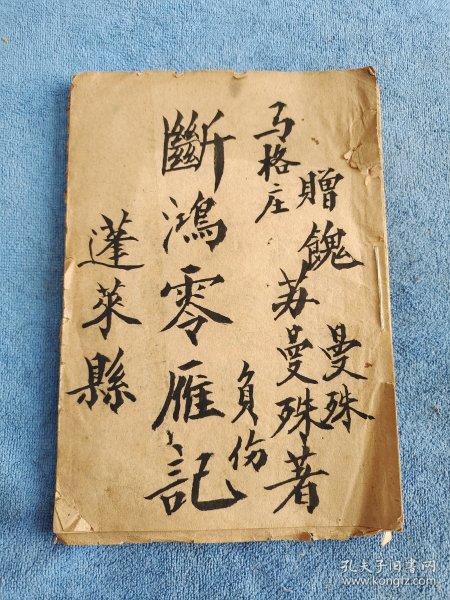 贈餽 曼殊
马格庄 苏曼殊著
負伤
斷鴻零雁記
蓬萊縣
孔夫子旧书网
www.kongfz.com